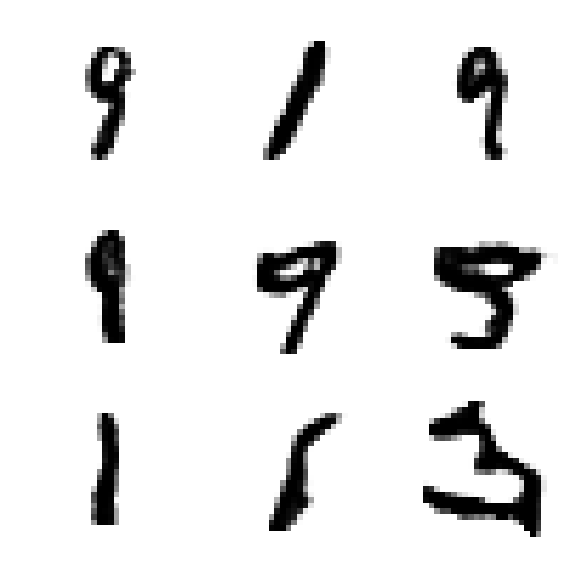 9 1 9
9 9 5
1 1 3